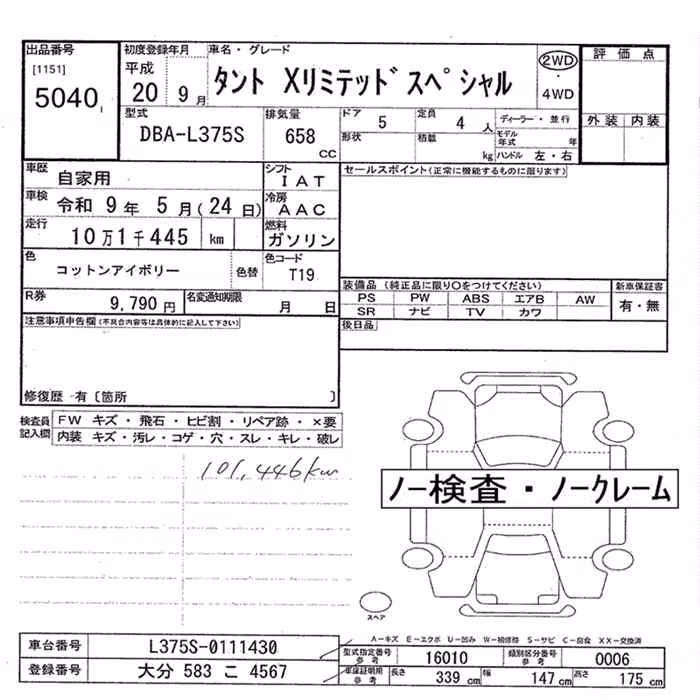 出品番号
[1151]
5040
初度登録年月
平成
20 9月
車名・グレード
タント Xリミテッドスペシャル
2WD
・
4WD
評価点
外装 内装
型式
DBA-L375S
排気量
658
cc
ドア
5
定員
4 人
ディーラー・並行
形状
積載
kg
モデル年式 年
ハンドル 左・右
車歴
自家用
シフト
IAT
セールスポイント(正常に機能するものに限ります)
車検
令和 9年 5月(24日)
冷房
AAC
走行
10万1千445 km
燃料
ガソリン
色
コットンアイボリー
色替
色コード
T19
装備品(純正品に限り○をつけてください)
新車保証書
PS PW ABS エアB AW
SR ナビ TV カワ
有・無
R券
9,790円
名変通知期限
月 日
後日品
注意事項申告欄(不具合内容等は具体的に記入して下さい)
修復歴 有〔箇所 〕
検査員記入欄
FW キズ・飛石・ヒビ割・リペア跡・×要
内装 キズ・汚レ・コゲ・穴・スレ・キレ・破レ
101,446km
ノー検査・ノークレーム
スペア
A-キズ E-エクボ U-凹み W-補修跡 S-サビ C-腐食 XX-交換済
車台番号
L375S-0111430
登録番号
大分 583 こ 4567
型式指定番号
参考
16010
類別区分番号
参考
0006
車庫証明用
参考
長さ
339 cm
幅
147 cm
高さ
175 cm